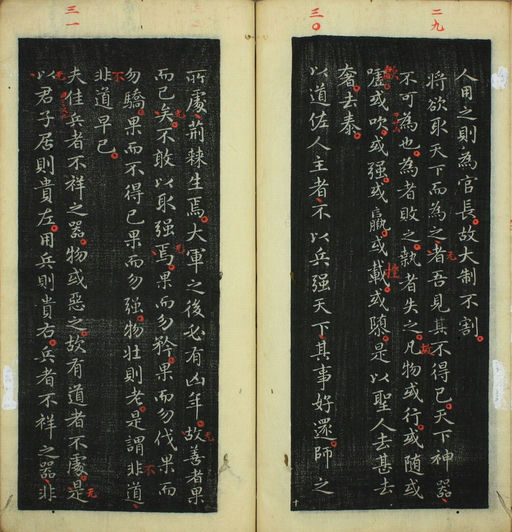 二九
人用之則為官長故大制不割
將欲取天下而為之者吾見其不得已天下神器
不可為也為者敗之執者失之凡物或行或隨或
噓或吹或强或羸或載或隳是以聖人去甚去
奢去泰
三〇
以道佐人主者不以兵强天下其事好還師之
所處荆棘生焉大軍之後必有凶年故善者果
而已矣不敢以取强焉果而勿矜果而勿伐果而
勿驕果而不得已果而勿强物壯則老是謂非道
非道早已
三一
夫佳兵者不祥之器物或惡之故有道者不處是
以君子居則貴左用兵則貴右兵者不祥之器非